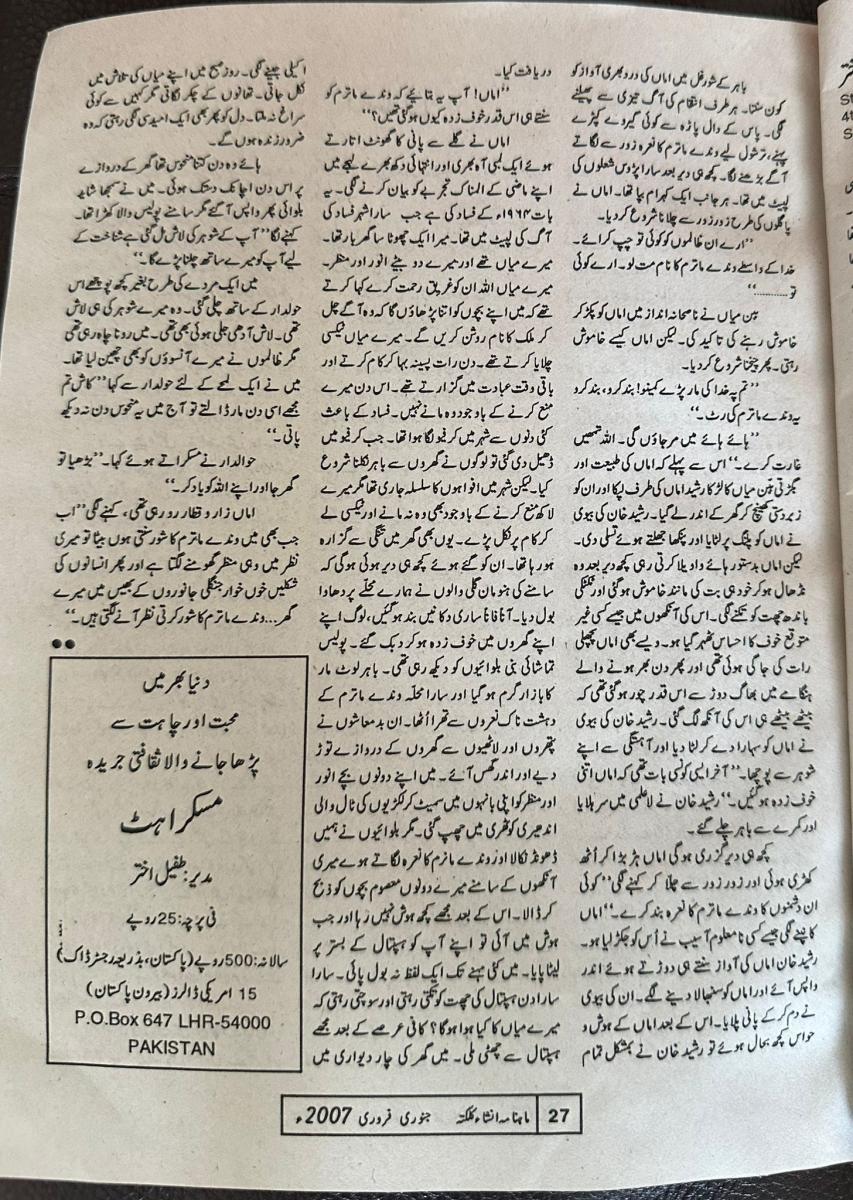 باہر کے شور غل میں اماں کی درد بھری آواز کو
کون سنتا۔ ہر طرف انتقام کی آگ تیزی سے پھیلنے
لگی۔ پاس کے وال پاڑہ سے کوئی گیروے کپڑے
پہنے، ترشول لیے وندے ماترم کا نعرہ زور سے لگاتے
آگے بڑھنے لگا۔ کچھ ہی دیر بعد سارا پڑوس شعلوں کی
لپیٹ میں تھا۔ ہر جانب ایک کہرام بپا تھا۔ اماں نے
پاگلوں کی طرح زور زور سے چلانا شروع کر دیا۔
’’ارے ان ظالموں کو کوئی تو چپ کرائے۔
خدا کے واسطے وندے ماترم کا نام مت لو۔ ارے کوئی
تو............‘‘
بین میاں نے ناصحانہ انداز میں اماں کو پکڑ کر
خاموش رہنے کی تاکید کی۔ لیکن اماں کیسے خاموش
رہتی۔ پھر چیخنا شروع کر دیا۔
’’تم پہ خدا کی مار پڑے کمینو! بند کرو، بند کرو
یہ وندے ماترم کی رٹ۔‘‘
’’ہائے ہائے میں مر جاؤں گی۔ اللہ تمھیں
غارت کرے۔‘‘ اس سے پہلے کہ اماں کی طبیعت اور
بگڑتی بین میاں کا لڑکا رشید اماں کی طرف لپکا اور ان کو
زبردستی کھینچ کر گھر کے اندر لے گیا۔ رشید خان کی بیوی
نے اماں کو پلنگ پر لٹایا اور پنکھا جھلتے ہوئے تسلی دی۔
لیکن اماں بدستور ہائے واویلا کرتی رہی کچھ دیر بعد وہ
نڈھال ہو کر خود ہی بت کی مانند خاموش ہو گئی اور ٹکٹکی
باندھ چھت کو تکنے لگی۔ اس کی آنکھوں میں جیسے کسی غیر
متوقع خوف کا احساس ٹھہر گیا ہو۔ ویسے بھی اماں پچھلی
رات کی جاگی ہوئی تھی اور پھر دن بھر ہونے والے
ہنگامے میں بھاگ دوڑ سے اس قدر چور ہو گئی تھی کہ
بیٹھے بیٹھے ہی اس کی آنکھ لگ گئی۔ رشید خان کی بیوی
نے اماں کو سہارا دے کر لٹا دیا اور آہستگی سے اپنے
شوہر سے پوچھا۔ ’’آخر ایسی کونسی بات تھی کہ اماں اتنی
خوف زدہ ہو گئیں۔‘‘ رشید خان نے لاعلمی میں سر ہلایا
اور کمرے سے باہر چلے گئے۔
کچھ ہی دیر گزری ہوگی اماں ہڑبڑا کر اُٹھ
کھڑی ہوئی اور زور زور سے چلا کر کہنے لگی ’’کوئی
ان دشمنوں کا وندے ماترم کا نعرہ بند کرے۔‘‘ اماں
کانپنے لگی جیسے کسی نامعلوم آسیب نے اُس کو جکڑ لیا ہو۔
رشید خان اماں کی آواز سنتے ہی دوڑتے ہوئے اندر
واپس آئے اور اماں کو سنبھالا دینے لگے۔ ان کی بیوی
نے دم کر کے پانی پلایا۔ اس کے بعد اماں کے ہوش و
حواس کچھ بحال ہوئے تو رشید خان نے بمشکل تمام
دریافت کیا۔
’’اماں! آپ یہ بتائیے کہ وندے ماترم کو
سنتے ہی اس قدر خوف زدہ کیوں ہو گئی تھیں؟‘‘
اماں نے گلے سے پانی کا گھونٹ اتارتے
ہوئے ایک لمبی آہ بھری اور انتہائی دکھ بھرے لہجے میں
اپنے ماضی کے المناک تجربے کو بیان کرنے لگی۔ یہ
بات ۱۹۶۴ء کے فساد کی ہے جب سارا شہر فساد کی
آگ کی لپیٹ میں تھا۔ میرا ایک چھوٹا سا گھر بار تھا۔
میرے میاں تھے اور میرے دو بیٹے انور اور منظر۔
میرے میاں اللہ ان کو غریق رحمت کرے کہا کرتے
تھے کہ میں اپنے بچوں کو اتنا پڑھاؤں گا کہ وہ آگے چل
کر ملک کا نام روشن کریں گے۔ میرے میاں ٹیکسی
چلایا کرتے تھے۔ دن رات پسینہ بہا کر کام کرتے اور
باقی وقت عبادت میں گزارتے تھے۔ اس دن میرے
منع کرنے کے باوجود وہ مانے نہیں۔ فساد کے باعث
کئی دنوں سے شہر میں کرفیو لگا ہوا تھا۔ جب کرفیو میں
ڈھیل دی گئی تو لوگوں نے گھروں سے باہر نکلنا شروع
کیا۔ لیکن شہر میں افواہوں کا سلسلہ جاری تھا مگر میرے
لاکھ منع کرنے کے باوجود بھی وہ نہ مانے اور ٹیکسی لے
کر کام پر نکل پڑے۔ یوں بھی گھر میں تنگی سے گزارہ
ہو رہا تھا۔ ان کو گئے ہوئے کچھ ہی دیر ہوئی ہوگی کہ
سامنے کی ہنومان گلی والوں نے ہمارے محلے پر دھاوا
بول دیا۔ آنا فانا ساری دکانیں بند ہو گئیں، لوگ اپنے
اپنے گھروں میں خوف زدہ ہو کر دبک گئے۔ پولیس
تماشائی بنی بلوائیوں کو دیکھ رہی تھی۔ باہر لوٹ مار
کا بازار گرم ہو گیا اور سارا محلہ وندے ماترم کے
دہشت ناک نعروں سے تھرا اُٹھا۔ ان بدمعاشوں نے
پتھروں اور لاٹھیوں سے گھروں کے دروازے توڑ
دیے اور اندر گھس آئے۔ میں اپنے دونوں بچے انور
اور منظر کو اپنی بانہوں میں سمیٹ کر لکڑیوں کی ٹال والی
اندھیری کوٹھری میں چھپ گئی۔ مگر بلوائیوں نے ہمیں
ڈھونڈ نکالا اور وندے ماترم کا نعرہ لگاتے ہوے میری
آنکھوں کے سامنے میرے دونوں معصوم بچوں کو ذبح
کر ڈالا۔ اس کے بعد مجھے کچھ ہوش نہیں رہا اور جب
ہوش میں آئی تو اپنے آپ کو ہسپتال کے بستر پر
لیٹا پایا۔ میں کئی مہینے تک ایک لفظ نہ بول پائی۔ سارا
سارا دن ہسپتال کی چھت کو تکتی رہتی اور سوچتی رہتی کہ
میرے میاں کا کیا ہوا ہوگا؟ کافی عرصے کے بعد مجھے
ہسپتال سے چھٹی ملی۔ میں گھر کی چار دیواری میں
اکیلی جینے لگی۔ روز صبح میں اپنے میاں کی تلاش میں
نکل جاتی۔ تھانوں کے چکر لگاتی مگر کہیں سے کوئی
سراغ نہ ملتا۔ دل کو پھر بھی ایک امید سی لگی رہتی کہ وہ
ضرور زندہ ہوں گے۔
ہائے وہ دن کتنا منحوس تھا گھر کے دروازے
پر اس دن اچانک دستک ہوئی۔ میں نے سمجھا شاید
بلوائی پھر واپس آ گئے مگر سامنے پولیس والا کھڑا تھا۔
کہنے لگا ’’آپ کے شوہر کی لاش مل گئی ہے شناخت کے
لیے آپ کو میرے ساتھ چلنا پڑے گا۔‘‘
میں ایک مردے کی طرح بغیر کچھ پوچھے اس
حولدار کے ساتھ چلی گئی۔ وہ میرے شوہر کی ہی لاش
تھی۔ لاش آدھی جلی ہوئی بھی تھی۔ میں رونا چاہ رہی تھی
مگر ظالموں نے میرے آنسوؤں کو بھی چھین لیا تھا۔
میں نے ایک لمحے کے لئے حولدار سے کہا ’’کاش تم
مجھے اسی دن مار ڈالتے تو آج میں یہ منحوس دن نہ دیکھ
پاتی۔‘‘
حوالدار نے مسکراتے ہوئے کہا۔ ’’بڑھیا تو
گھر جا اور اپنے اللہ کو یاد کر۔‘‘
اماں زار و قطار رو رہی تھی، کہنے لگی ’’اب
جب بھی میں وندے ماترم کا شور سنتی ہوں بیٹا تو میری
نظر میں وہی منظر گھومنے لگتا ہے اور پھر انسانوں کی
شکلیں خوں خوار جنگلی جانوروں کے بھیس میں میرے
گھر... وندے ماترم کا شور کرتی نظر آنے لگتی ہیں۔‘‘
●●
دنیا بھر میں
محبت اور چاہت سے
پڑھا جانے والا ثقافتی جریدہ
مسکراہٹ
مدیر: طفیل اختر
فی پرچہ: 25 روپے
سالانہ: 500 روپے (پاکستان، بذریعہ رجسٹرڈ ڈاک)
15 امریکی ڈالرز (بیرون پاکستان)
P.O.Box 647 LHR-54000
PAKISTAN
27 ماہنامہ انشاء کلکتہ جنوری فروری 2007ء